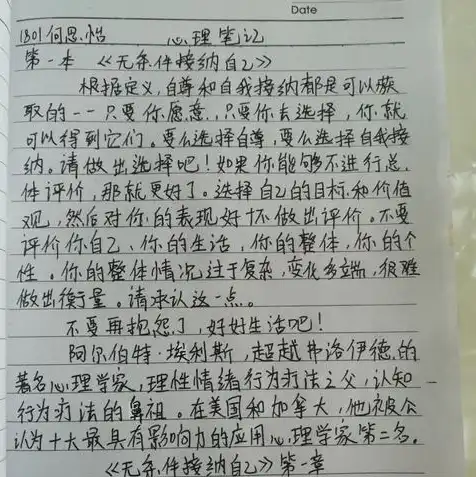 Date
1801何思怡 心理笔记
第一本 《无条件接纳自己》
根据定义,自尊和自我接纳都是可以获
取的--只要你愿意,只要你去选择,你就
可以得到它们。要么选择自尊,要么选择自我接
纳。请做出选择吧!如果你能够不进行总
体评价,那就更好了。选择自己的目标和价值
观,然后对你的表现好坏做出评价。不要
评价你自己、你的生活,你的整体,你的个
性。你的整体情况过于复杂,变化多端,很难
做出衡量。请承认这一点。
不要再抱怨了,好好生活吧!
阿尔伯特·埃利斯,超越弗洛伊德的
著名心理学家,理性情绪行为疗法之父,认知
行为疗法的鼻祖。在美国和加拿大,他被公
认为十大最具有影响力的应用心理学家第二名。
《无条件接纳自己》第一章